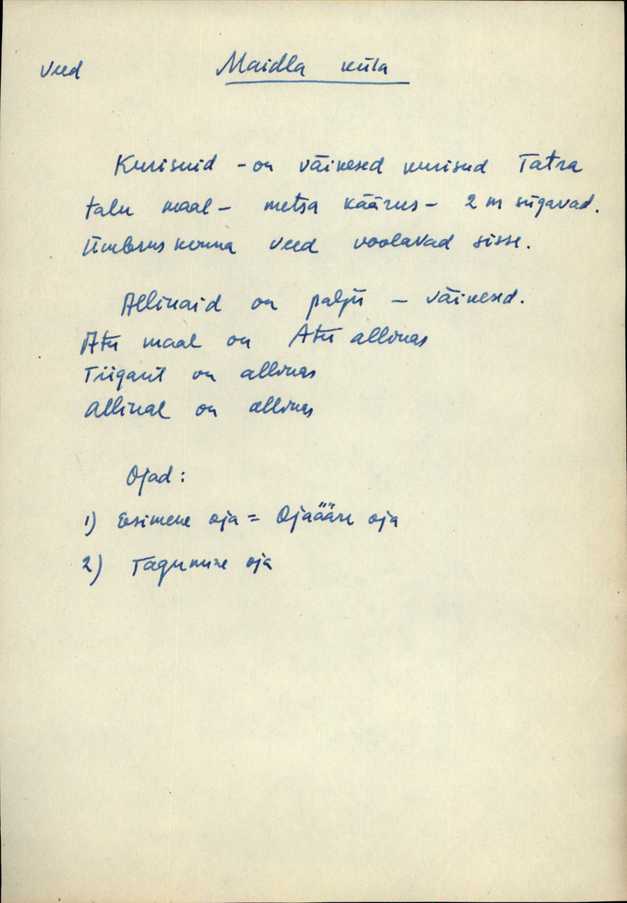 Veed
Maidla küla
Kurisuid - on väikesed kurisud Tatra
talu maal - metsa käärus - 2 m sügavad.
Ümbruskonna veed voolavad sisse.
Allikaid on palju - väikesed.
Atu maal on Atu allikas
Tiigart on allikas
Allikal on allikas
Ojad:
1) Esimene oja = Ojaääre oja
2) Tagumine oja